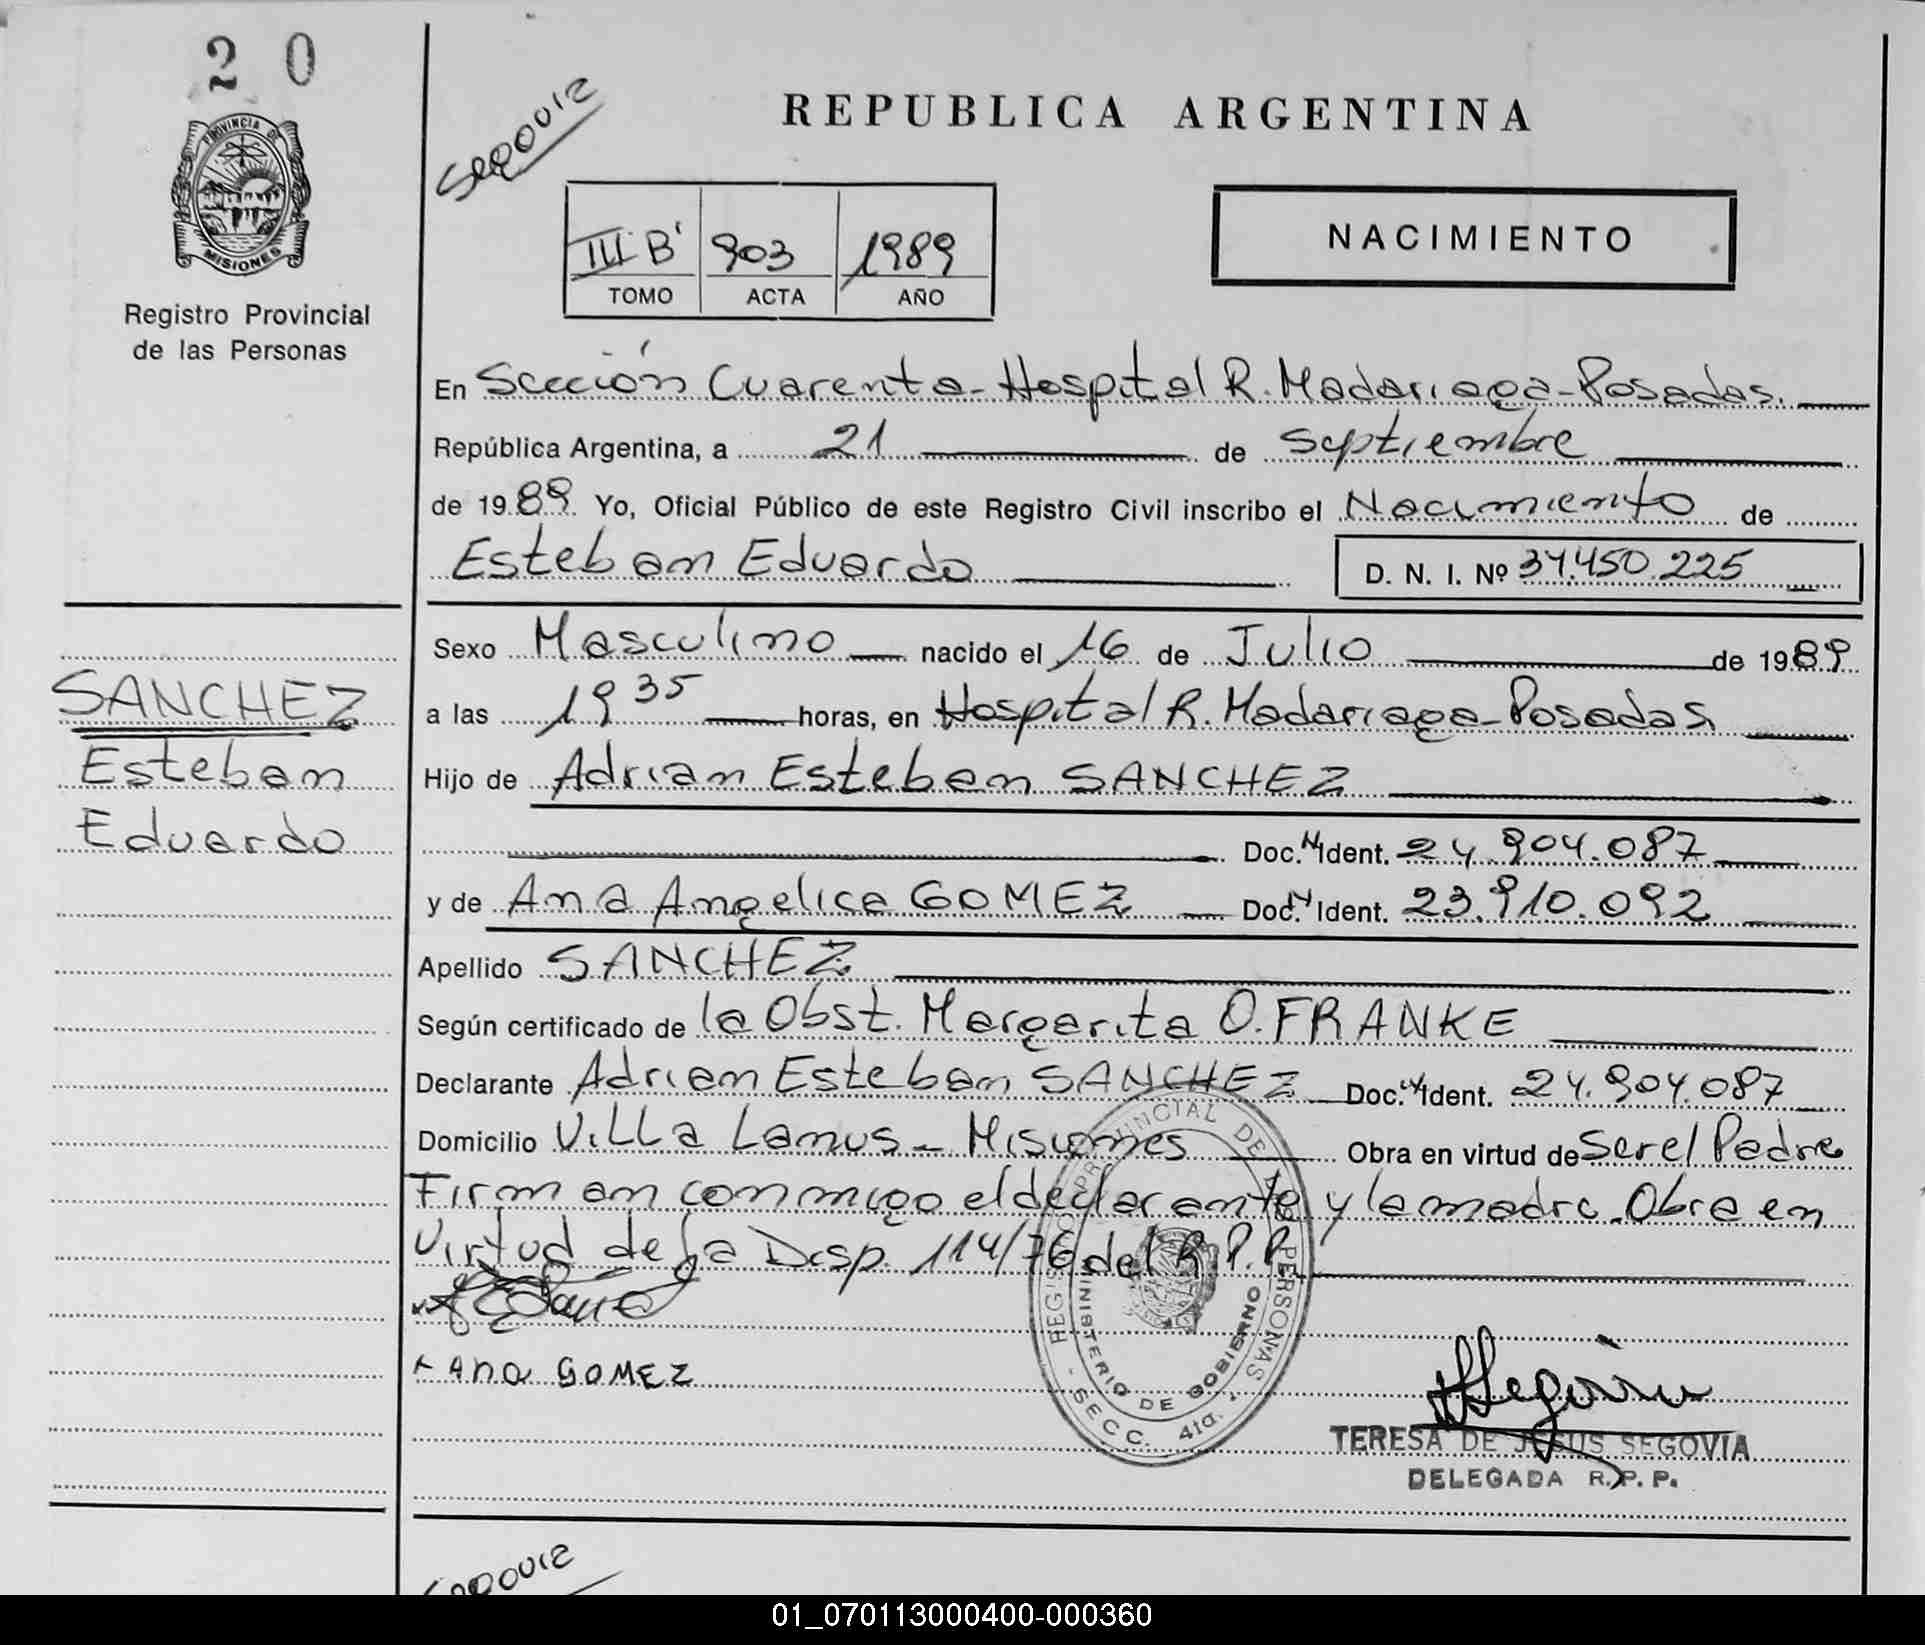 2 0
PROVINCIA DE
MISIONES
Registro Provincial
de las Personas
REPUBLICA ARGENTINA
III "B" 903 1989
TOMO ACTA AÑO
NACIMIENTO
En Sección Cuarenta - Hospital R. Madariaga - Posadas.
República Argentina, a 21 de Septiembre
de 1989. Yo, Oficial Público de este Registro Civil inscribo el Nacimiento de
Esteban Eduardo D. N. I. Nº 34.450.225
Sexo Masculino nacido el 16 de Julio de 1989
a las 19 35 horas, en Hospital R. Madariaga - Posadas
Hijo de Adrian Esteban SANCHEZ
Doc. N. Ident. 24.904.087
y de Ana Angelica GOMEZ Doc. N. Ident. 23.910.092
Apellido SANCHEZ
Según certificado de la Obst. Margarita O. FRANKE
Declarante Adrian Esteban SANCHEZ Doc. N. Ident. 24.904.087
Domicilio Villa Lanus - Misiones Obra en virtud de Ser el Padre
Firman conmigo el declarante y la madre. Obra en
Virtud de la Disp. 114/76 del R.P.P.
Ana GOMEZ
SANCHEZ
Esteban
Eduardo
REGISTRO PROVINCIAL DE LAS PERSONAS
MINISTERIO DE GOBIERNO
SECC. 4ta.
TERESA DE JESUS SEGOVIA
DELEGADA R. P. P.
01_070113000400-000360